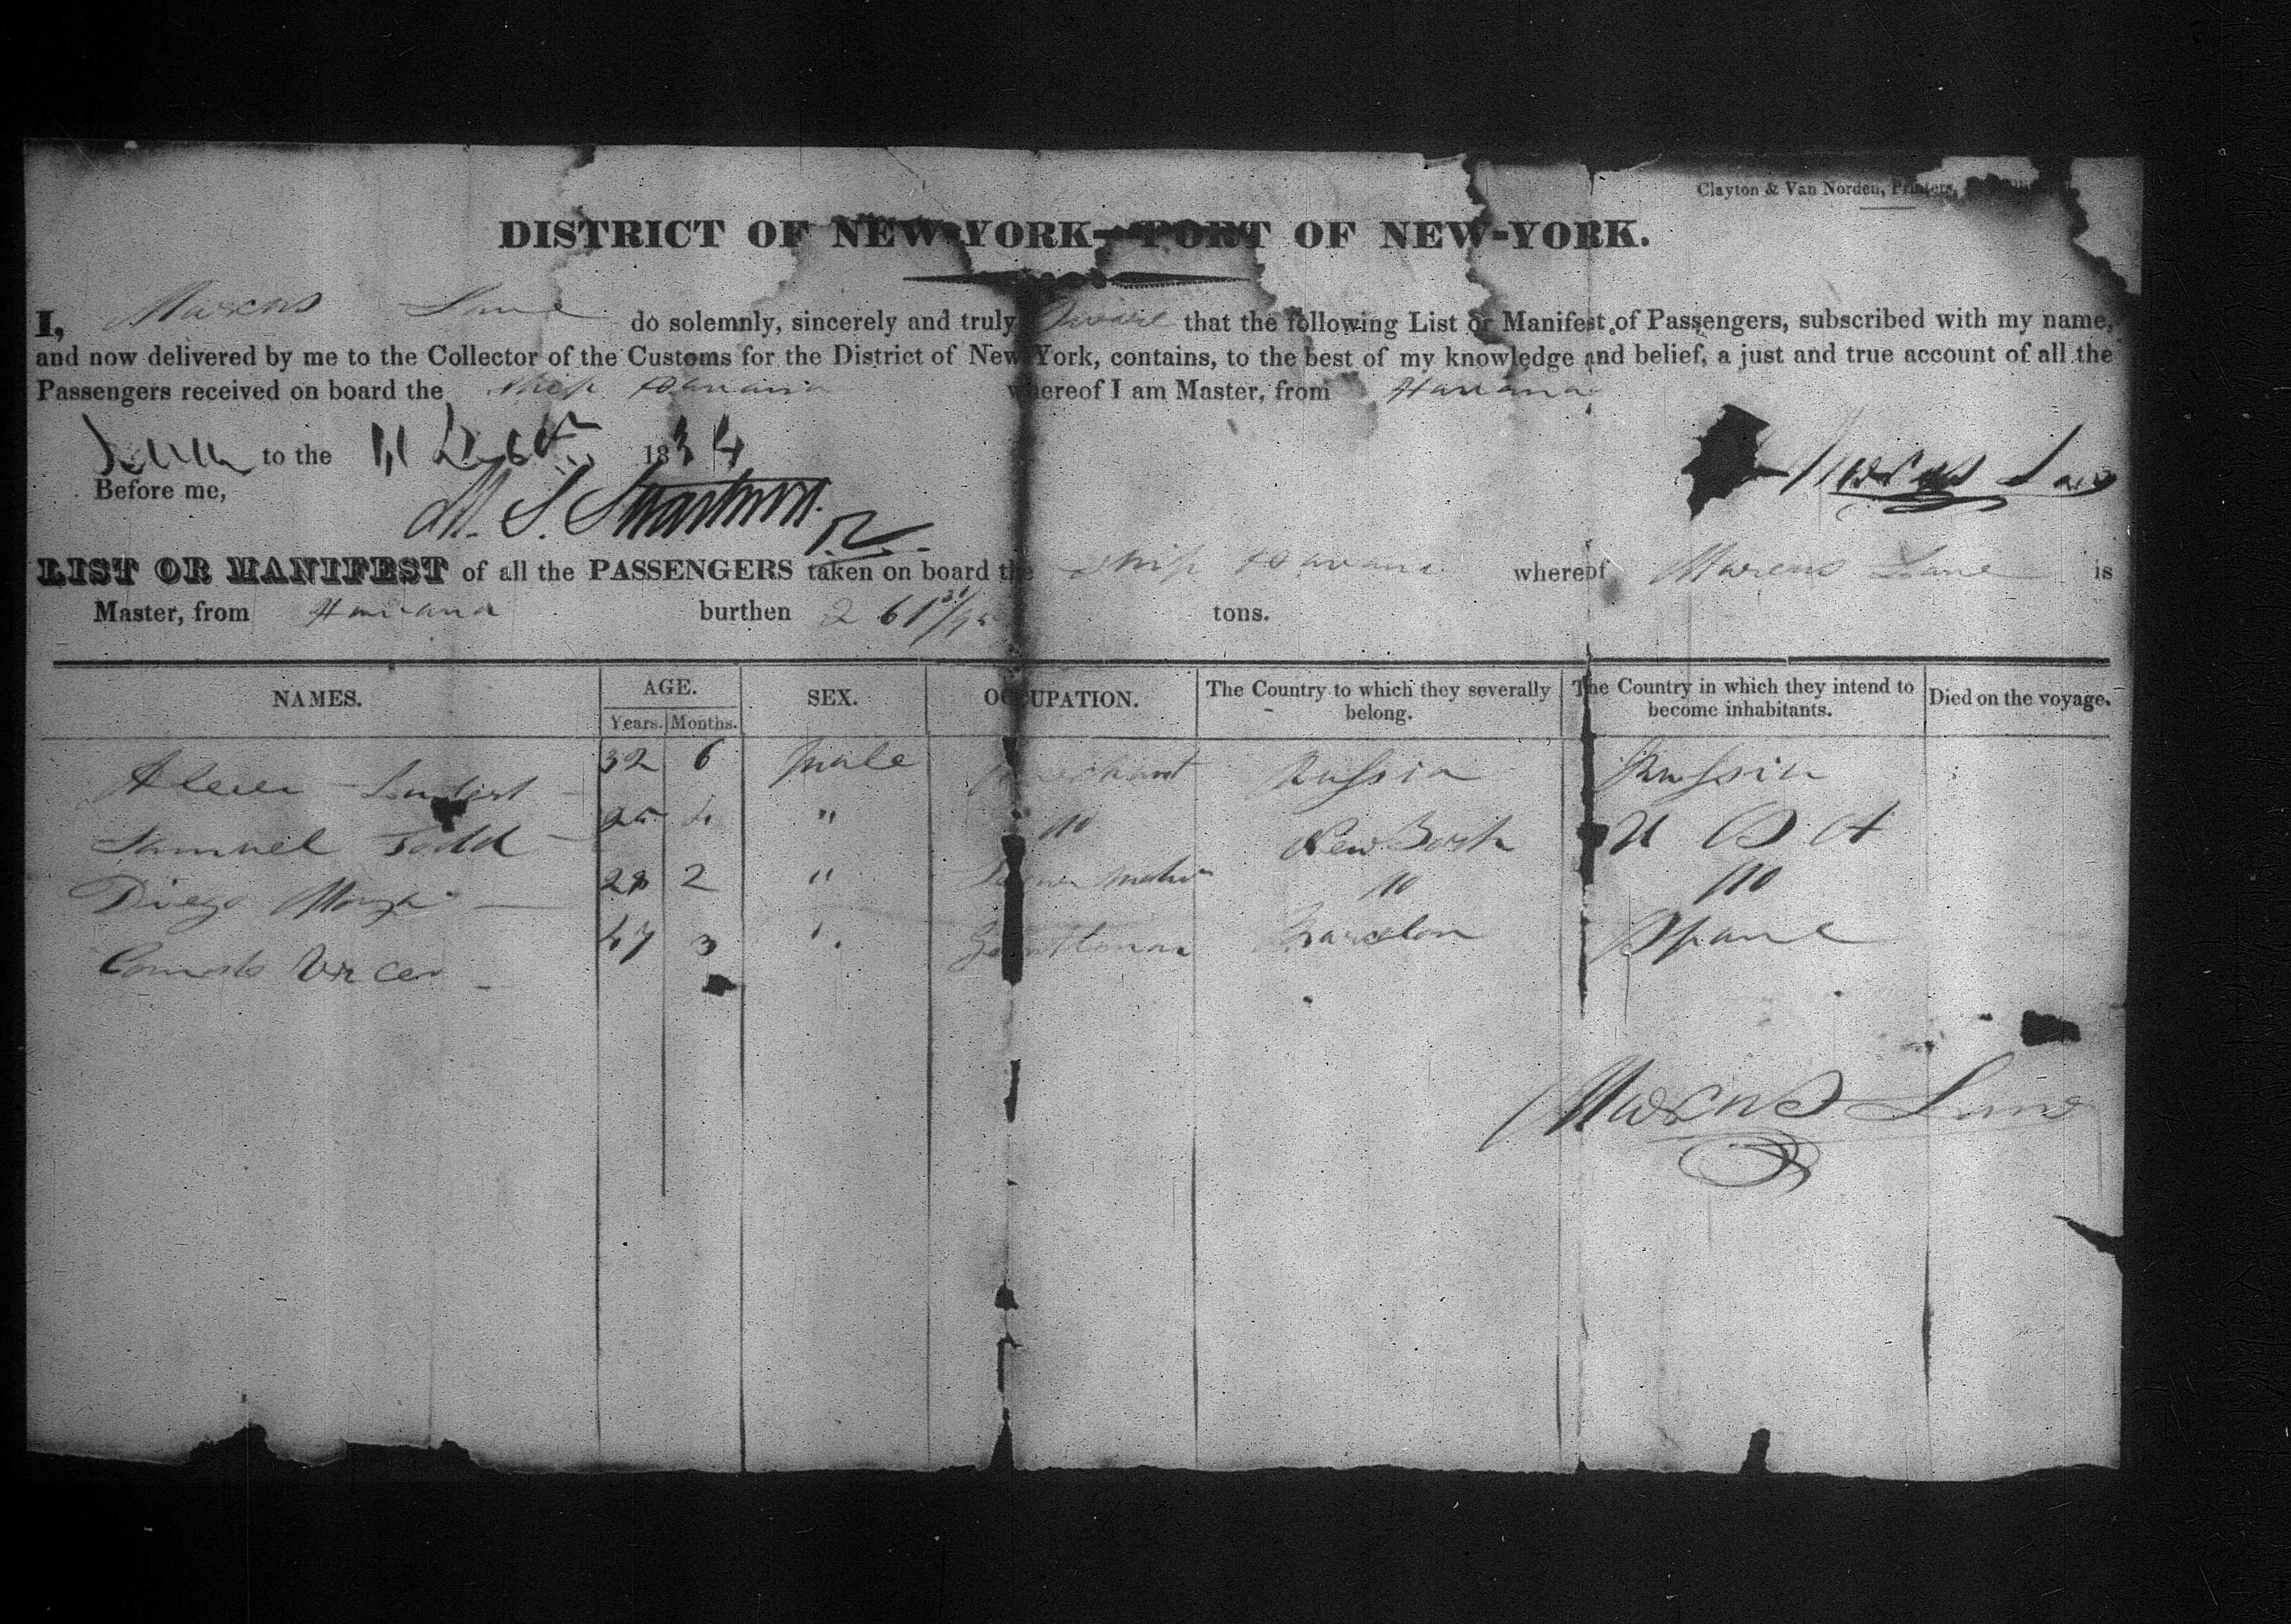 Clayton & Van Norden, Printers,
DISTRICT OF NEW-YORK—PORT OF NEW-YORK.
I, Marcus Lane do solemnly, sincerely and truly Swear that the following List or Manifest of Passengers, subscribed with my name,
and now delivered by me to the Collector of the Customs for the District of New York, contains, to the best of my knowledge and belief, a just and true account of all the
Passengers received on board the Ship Havana whereof I am Master, from Havana
to the 11 1834 Marcus Lane
Before me,
LIST OR MANIFEST of all the PASSENGERS taken on board the Ship Havana whereof Marcus Lane is
Master, from Havana burthen 261 tons.
NAMES. AGE. Years. Months. SEX. OCCUPATION. The Country to which they severally belong. The Country in which they intend to become inhabitants. Died on the voyage.
32 6 Male Merchant Russia Russia
Samuel Todd 25 4 " Do New York U S A
Diego 28 2 " Do Do
47 3 " Gentleman Barcelon Spane
Marcus Lane